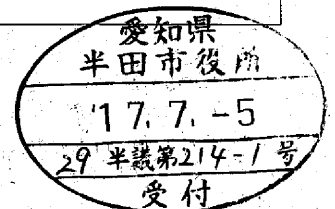 愛知県
半田市役所
'17.7.-5
29半議第214-1号
受付